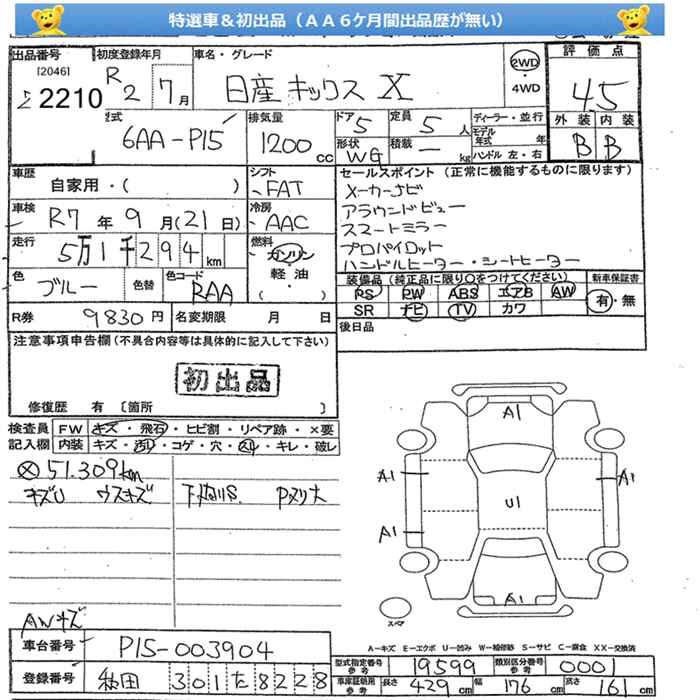 特選車＆初出品（ＡＡ６ケ月間出品歴が無い）
出品番号 初度登録年月 車名・グレード 評価点
[2046] R2 7月 日産 キックス X 2WD・4WD 4.5
2210
型式 排気量 ドア 定員 ディーラー・並行 外装 内装
6AA-P15 1200cc 5 5人 モデル年式 年 B B
形状 積載 ハンドル 左・右
WG ー kg
車歴 シフト セールスポイント（正常に機能するものに限ります）
自家用・( ) FAT メーカーナビ
車検 冷房 アラウンドビュー
R7年9月(21日) AAC スマートミラー
走行 燃料 プロパイロット
5万1千294km ガソリン ハンドルヒーター・シートヒーター
軽油
( )
色 色替 色コード 装備品（純正品に限り○をつけてください） 新車保証書
ブルー RAA PS PW ABS エアB AW 有・無
SR ナビ TV カワ
R券 9830円 名変期限 月 日 後日品
注意事項申告欄（不具合内容等は具体的に記入して下さい）
初出品
修復歴 有 〔箇所 〕
検査員 FW キズ・飛石・ヒビ割・リペア跡・×要
記入欄 内装 キズ・汚れ・コゲ・穴・スレ・キレ・破レ
51.309km
キズU ウスキズ 下廻りS. Pヌリ大
A1
A1 A1
U1
A1
A1
スペア
AWキズ
A-キズ E-エクボ U-凹み W-補修跡 S-サビ C-腐食 XX-交換済
車台番号 P15-003904
登録番号 秋田 301 た 8228
型式指定番号 参考 19599 類別区分番号 参考 0001
車庫証明用 参考 長さ 429cm 幅 176cm 高さ 161cm